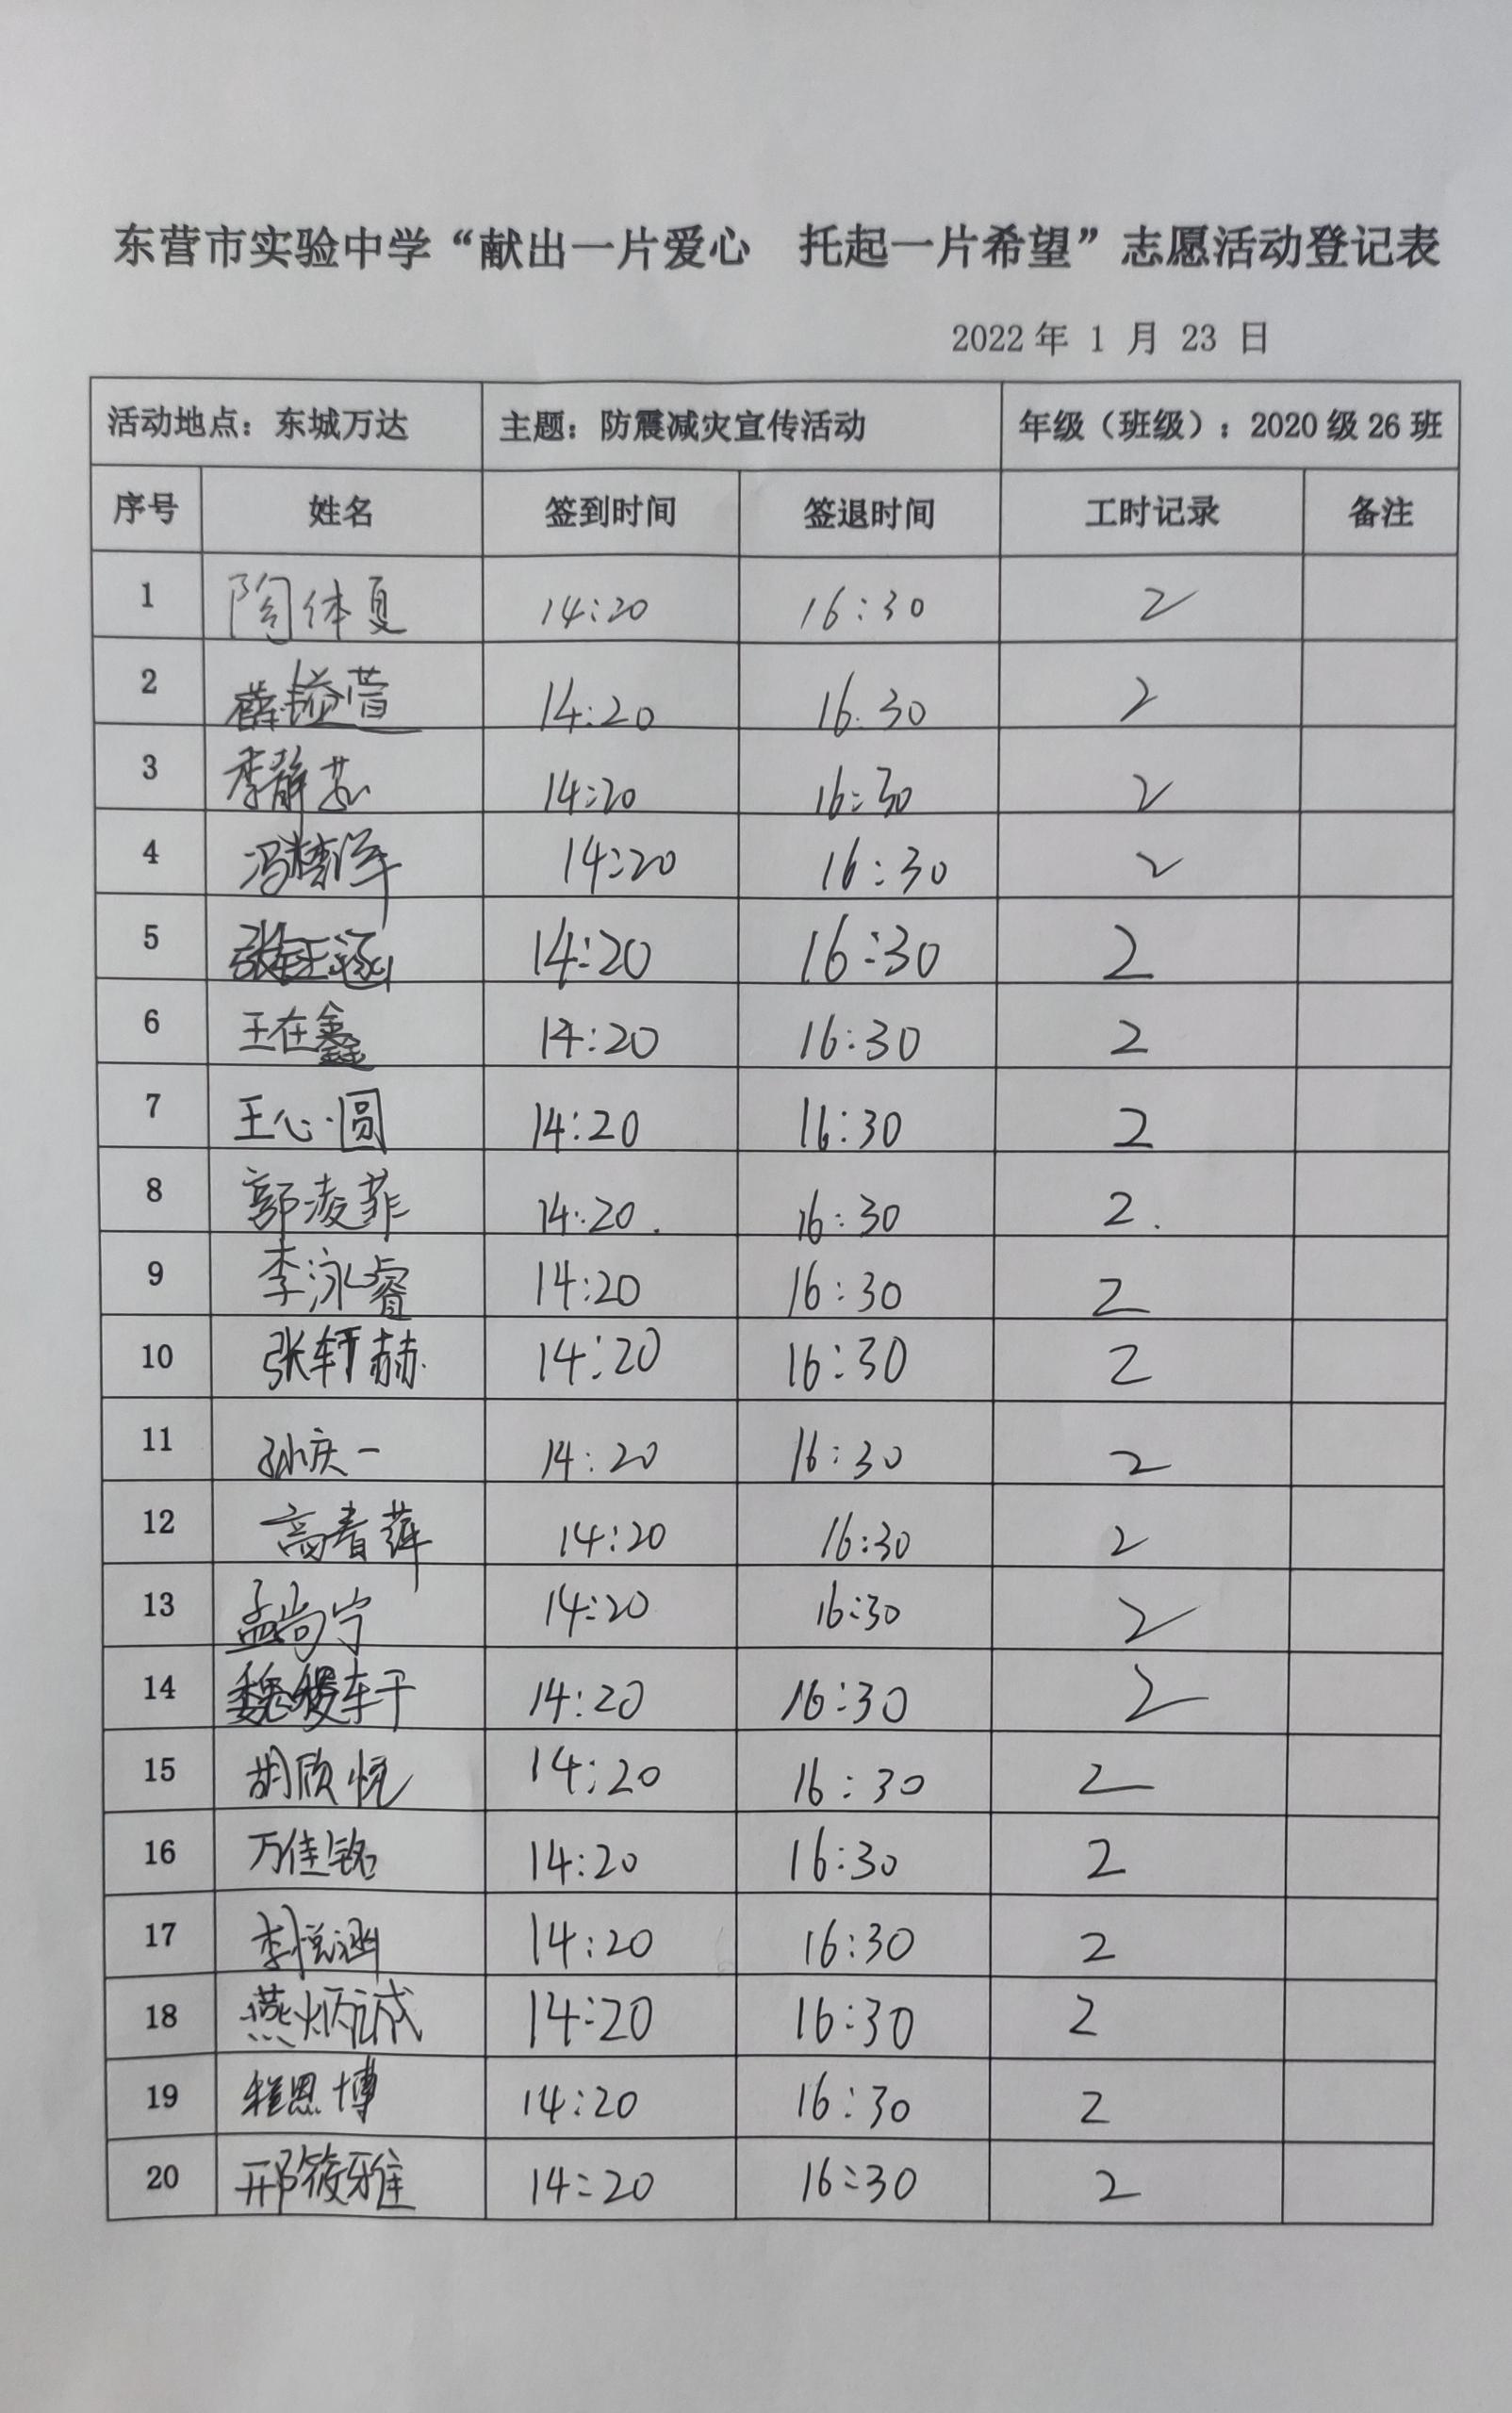 东营市实验中学“献出一片爱心 托起一片希望”志愿活动登记表
2022年 1 月 23 日
活动地点：东城万达 主题：防震减灾宣传活动 年级（班级）：2020级26班
序号 姓名 签到时间 签退时间 工时记录 备注
1 陶体夏 14:20 16:30 2
2 薛镒萱 14:20 16:30 2
3 李静 14:20 16:30 2
4 冯 14:20 16:30 2
5 张钰涵 14:20 16:30 2
6 王在鑫 14:20 16:30 2
7 王心圆 14:20 16:30 2
8 郭凌菲 14:20. 16:30 2.
9 李泳睿 14:20 16:30 2
10 张轩赫 14:20 16:30 2
11 孙庆一 14:20 16:30 2
12 高青萍 14:20 16:30 2
13 孟尚宁 14:20 16:30 2
14 魏稷轩 14:20 16:30 2
15 胡欣悦 14:20 16:30 2
16 万佳铭 14:20 16:30 2
17 李悦涵 14:20 16:30 2
18 燕炳诚 14:20 16:30 2
19 程恩博 14:20 16:30 2
20 邢筱雅 14:20 16:30 2